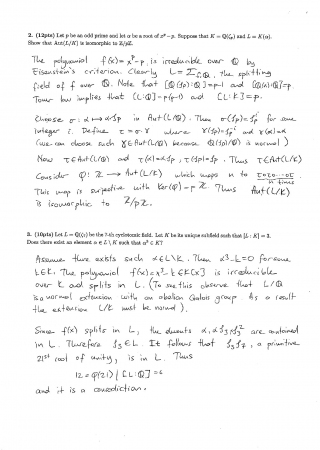 2. (12pts) Let p be an odd prime and let α be a root of x^p − p. Suppose that K = Q(ζ_p) and L = K(α).
Show that Aut(L/K) is isomorphic to Z/pZ.
The polynomial f(x) = x^p − p, is irreducible over Q by
Eisenstein's criterion. Clearly L = Σ_{f,Q}, the splitting
field of f over Q. Note that [Q(ζ_p):Q] = p−1 and [Q(α):Q] = p.
Tower law implies that [L:Q] = p(p−1) and [L:K] = p.
Choose σ: α ↦ αζ_p in Aut(L/Q). Then σ(ζ_p) = ζ_p^i for some
integer i. Define τ = σ·γ where γ(ζ_p^i) = ζ_p and γ(α) = α
(we can choose such γ ∈ Aut(L/Q) because Q(ζ_p)/Q is normal)
Now τ ∈ Aut(L/Q) and τ(α) = αζ_p, τ(ζ_p) = ζ_p. Thus τ ∈ Aut(L/K)
Consider φ: Z → Aut(L/K) which maps n to τ∘τ∘...∘τ
n times
This map is surjective with Ker(φ) = pZ. Thus Aut(L/K)
is isomorphic to Z/pZ.
3. (10pts) Let L = Q(ζ_7) be the 7-th cyclotomic field. Let K be its unique subfield such that [L : K] = 3.
Does there exist an element α ∈ L \ K such that α^3 ∈ K?
Assume there exists such α ∈ L\K. Then α^3 − t = 0 for some
t ∈ K. The polynomial f(x) = x^3 − t ∈ K[x] is irreducible
over K and splits in L. (To see this observe that L/Q
is a normal extension with an abelian Galois group. As a result
the extension L/K must be normal).
Since f(x) splits in L, the elements α, αζ_3, αζ_3^2 are contained
in L. Therefore ζ_3 ∈ L. It follows that ζ_3ζ_7, a primitive
21st root of unity, is in L. Thus
12 = φ(21) | [L:Q] = 6
and it is a contradiction.